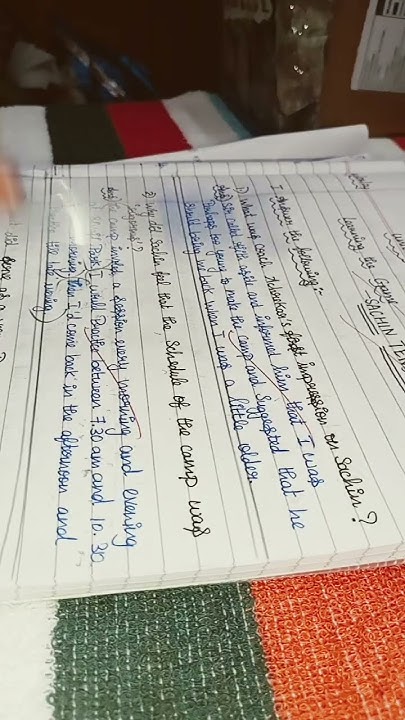 Learning the Game
SACHIN TEN
I Answer the following:-
1) What was coach Achrekar's first impression on Sachin?
Ans) Sir called Ajit aside and informed him that I was
Perhaps too young to make the camp and suggested that he
should bring me back when I was a little older
2) Why did Sachin feel that the schedule of the camp was
rigorous?
Ans) The camp involved a session every morning and evening
at Park I would Practice between 7.30 am and 10.30
morning then I'd come back in the afternoon and
the evening
did